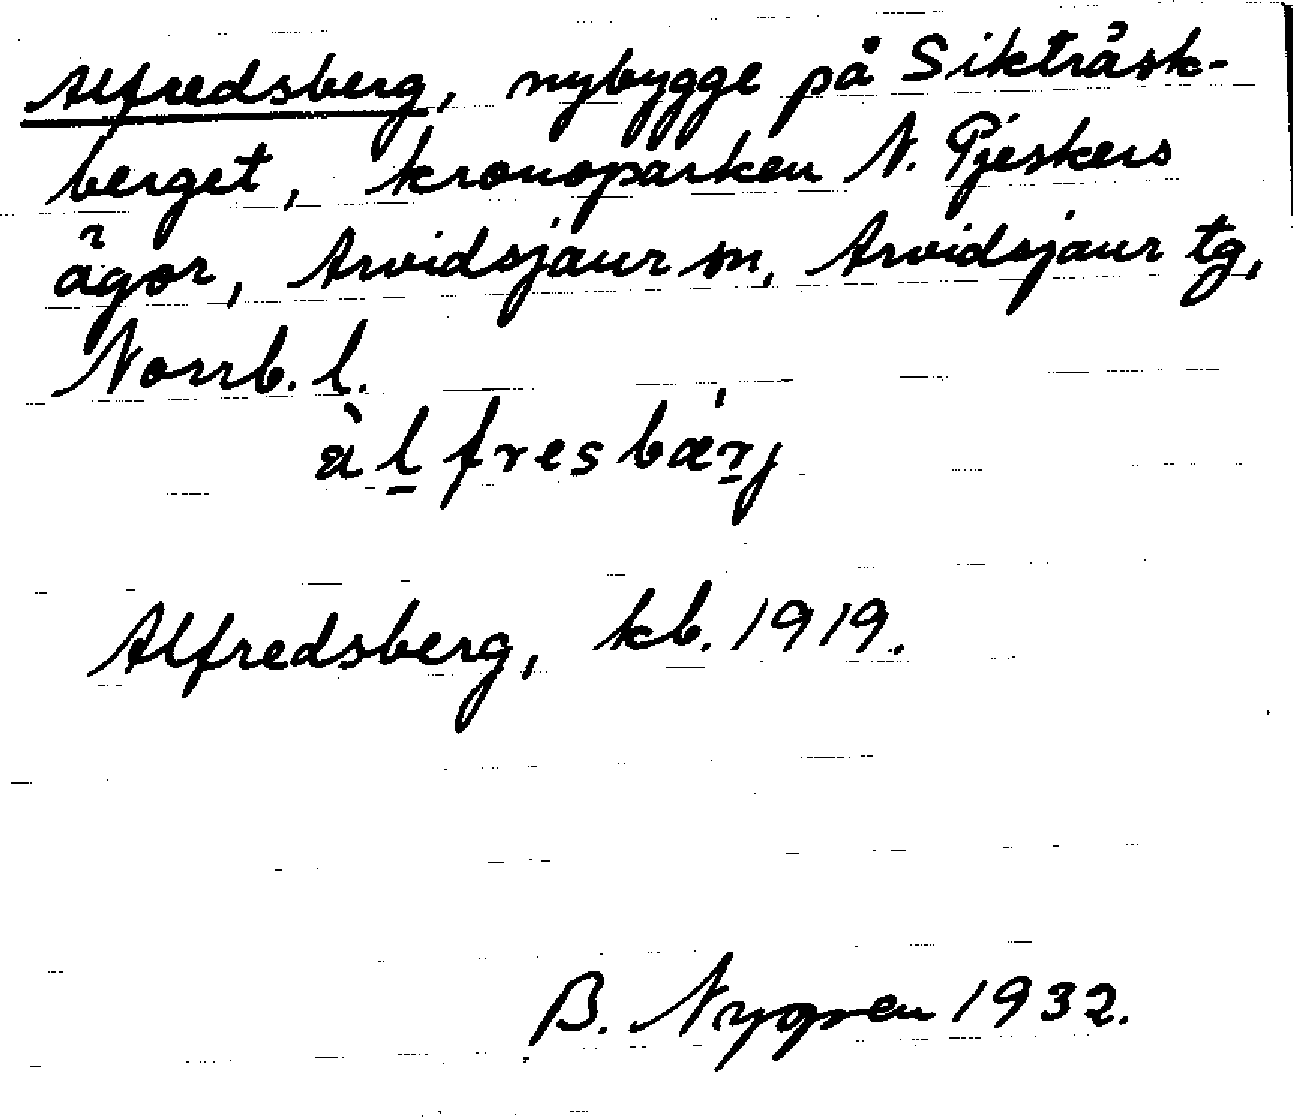 Alfredsberg, nybygge på Sikträsk-
berget, kronoparken N. Pjeskers
ägor, Arvidsjaur sn, Arvidsjaur tg,
Norrb. l.
àl̲fresbær̲j
Alfredsberg, kb. 1919.
B. Nygren 1932.